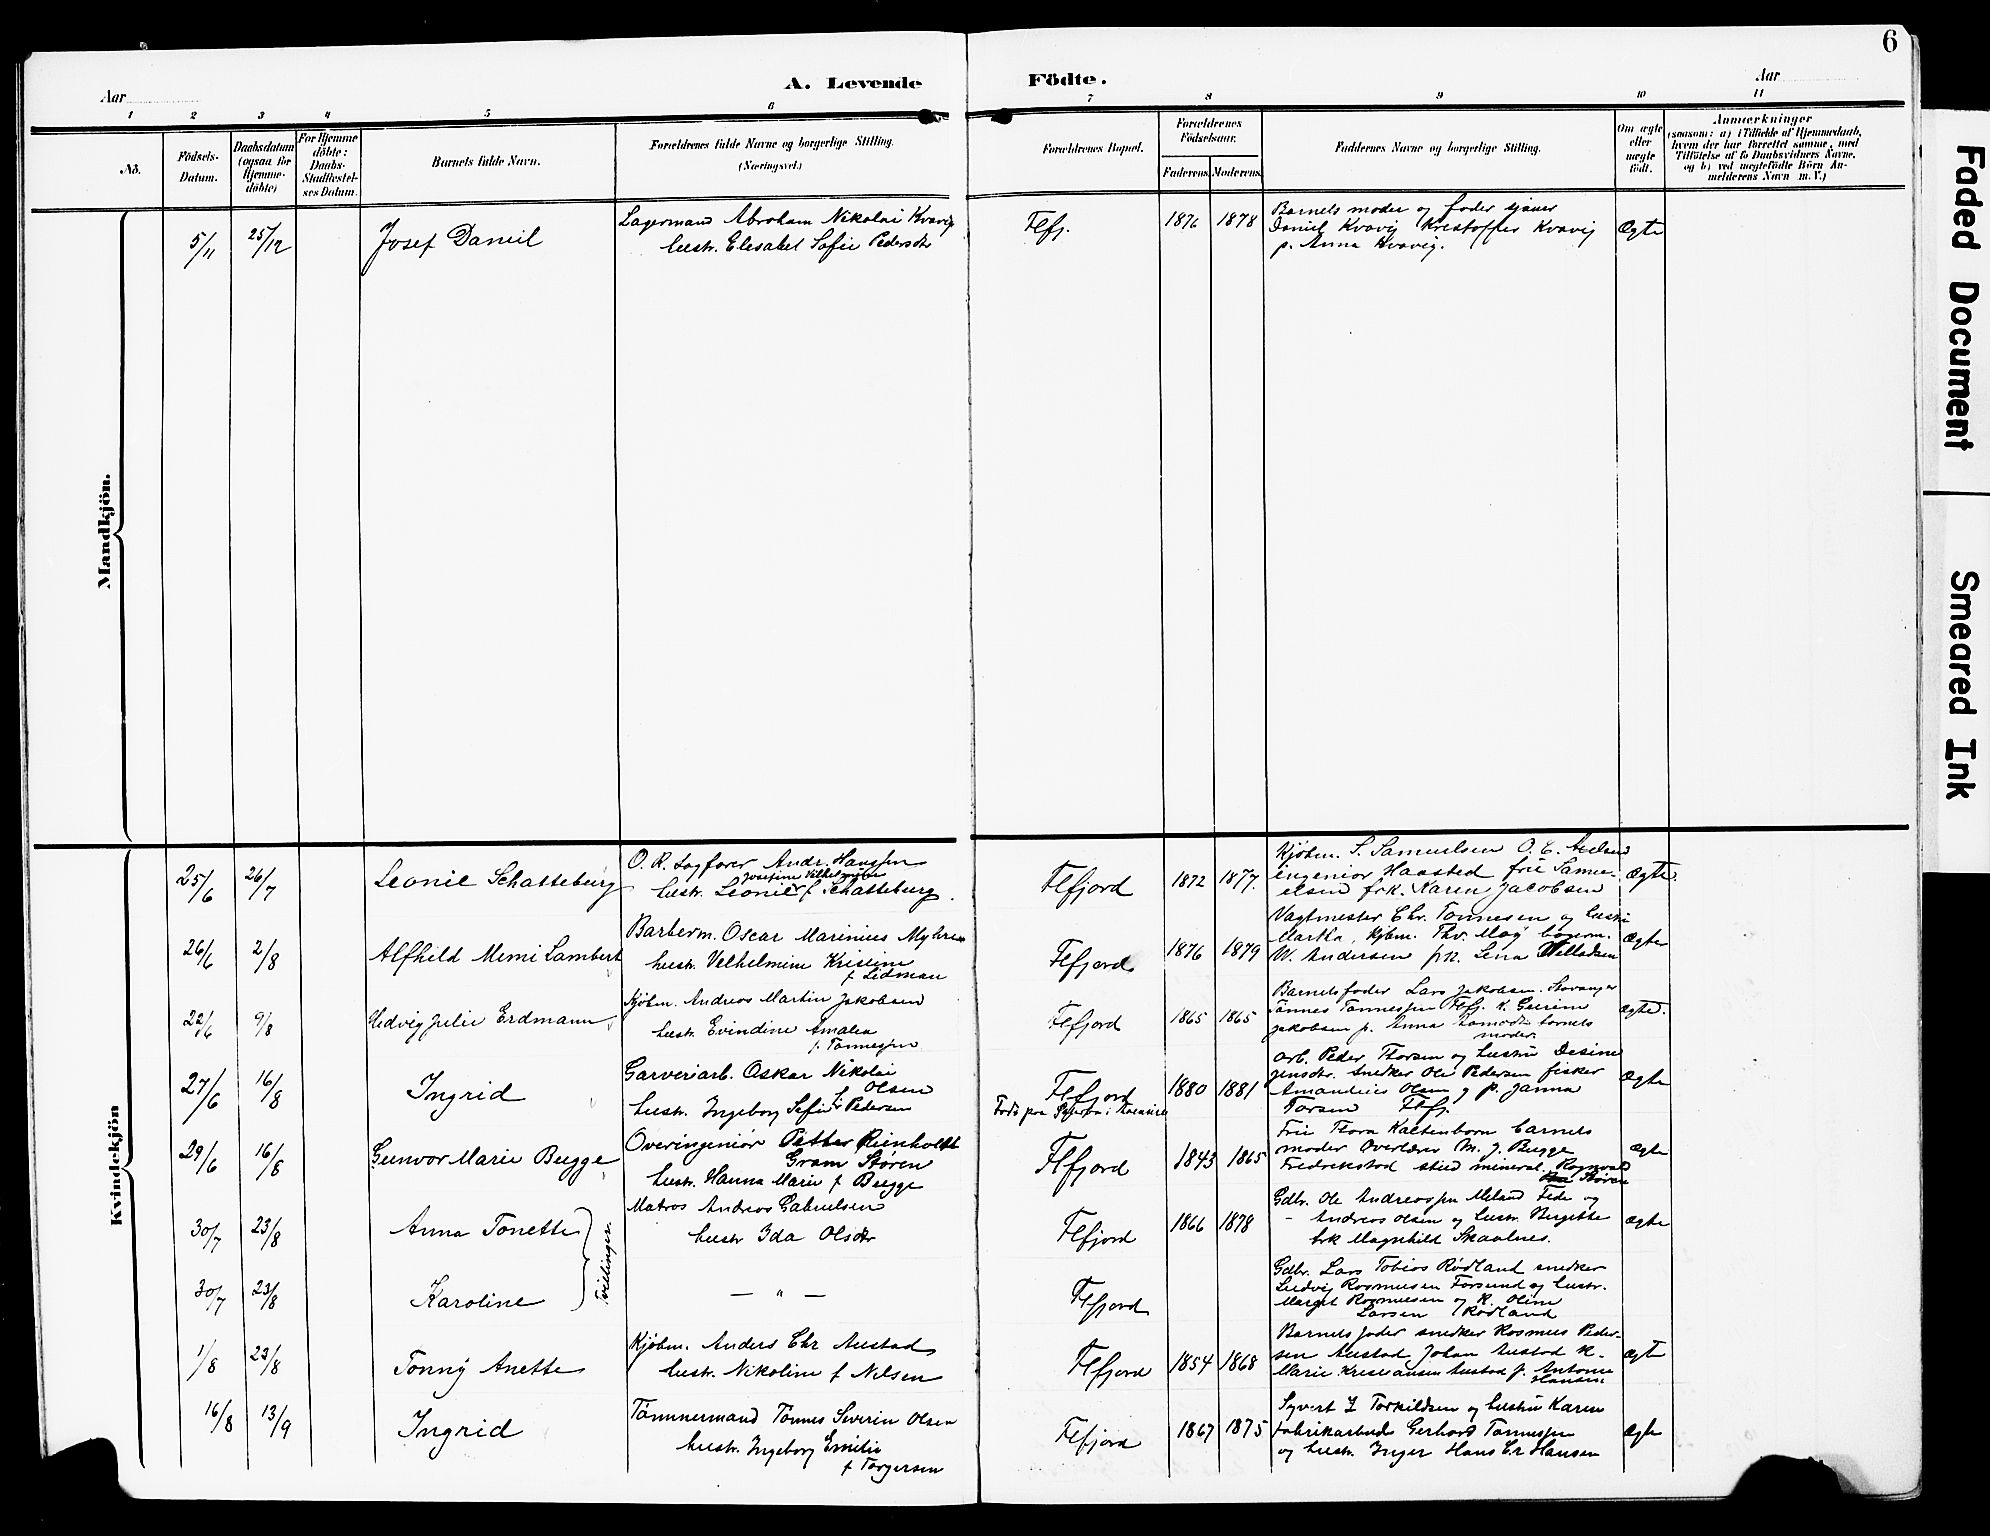 6
Aar
A. Levende
Födte.
Aar
1 2 3 4 5 6 7 8 9 10 11
No.
Födsels-
Datum.
Daabsdatum
(ogsaa for
Hjemme-
döbte)
For Hjemme
döbte:
Daabs-
Stadfæstel-
ses Datum.
Barnets fulde Navn.
Forældrenes fulde Navne og borgerlige Stilling.
(Næringsvei.)
Forældrenes Bopæl.
Forældrenes
Födselsaar.
Faderens. Moderens.
Faddernes Navne og borgerlige Stilling.
Om ægte
eller
uægte
födt.
Anmærkninger
(saasom: a) i Tilfælde af Hjemmedaab,
hvem der har forrettet samme, med
Tilföielse af to Daabsvidners Navne,
og b) ved uægtefödte Börn An-
melderens Navn m. V.)
Mandkjön.
5/11 25/12 Josef Daniel
Lagermand Abraham Nikolai Kvavig
hustr. Elisabet Sofie Pedersdtr
Flfj. 1876 1878
Barnets moder og fader sjauer
Daniel Kvavig Kristoffer Kvavig
p. Anna Kvavig.
Ægte
Kvindekjön
25/6 26/7 Leonie Schatteburg
O. R. sagfører Andr. Hanssen
Josefine Vilhelmine
hustr. Leonie f Schatteburg.
Flfjord 1872 1877.
Kjøbm. S. Samuelsen O. C. Axelsen
ingeniør Haasted frü Samu-
elsen frk. Karen Jacobsen
Ægte.
26/6 2/8 Alfhild Memi Lambert
Barberm. Oscar Marinius Myhren
hustr. Vilhelmine Kristine
f. Lidman
Flfjord 1876 1879
Vagtmester Chr. Tønnesen og hustru
Martha, Kjøbm. Thv. Moy bogerm.
W. Andersen pik. Lena Willadsen
Ægte
22/6 9/8 Hedvig Julie Erdmann
Kjøbm. Andreas Martin Jakobsen
hustr. Evindine Amalia
f. Tønnessen
Flfjord 1865 1865
Barnets fader Lars Jakobsen. Stavanger
Tønnes Tønnessen Flfj. K. Gurine
Jakobsen p. Anna barnets
moder.
Ægte.
27/6 16/8 Ingrid
Garveriarb. Oskar Nikolai
Olsen
hustr. Ingeborg Sofie f. Pedersen
Flfjord
1880 1881
Arb. Peder Thorsen og hustru Desine
Jensdtr. Snedker Ole Pedersen fisker
Amandus Olsen og p. Janna
Torsen Flfj.
Ægte
29/6 16/8 Gunvor Marie Bugge
Overingeniør Petter Rienholdt
Gram Støren
hustr. Hanna Marie f Bugge
Flfjord 1843 1865
Frü Thora Kaltenborn barnets
moder Overlærer M. J. Bugge
Fredrikstad stud mineral. Ragnvald
Støren
Ægte
30/7 23/8 Anna Tonette
Tvillinger.
Matros Andreas Gabrielsen
hustr Ida Olsdtr
Flfjord 1866 1878
Gdbr. Ole Andreassen Meland Fede og
– Andreas Olsen og hustr. Bergitte
frk Magnhild Skaalnes.
Ægte
30/7 23/8 Karoline
— " —
Flfjord
Gdbr. Lars Tobias Rødland snedker
Ludvig Rasmussen Forsund og hustr.
Margit Rasmussen og K. Oline
Larsen Rødland
1/8 23/8 Tonny Anette
Kjøbm. Anders Chr Austad
hustr. Nikoline f Nilsen
Flfjord 1854 1868
Barnets fader snedker Rasmus Peder-
sen Austad Johan Austad K.
Marie Kristiansen Austad p. Antonie
Hansen
Ægt
16/8 13/9 Ingrid
Tømmermand Tønnes Severin Olsen
hustr. Ingeborg Emilie
f Torgersen
Flfjord 1867 1875
Syvert L Torkildsen og hustru Karen
fabrikarbeid Gerhard Tønnessen
og hustr. Inger Hans Cr Hansen
Ægte
Faded Document
Smeared Ink